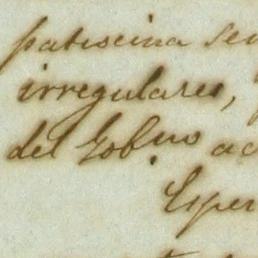 patrocina se
irregulares,
del Gobno ac
Esper